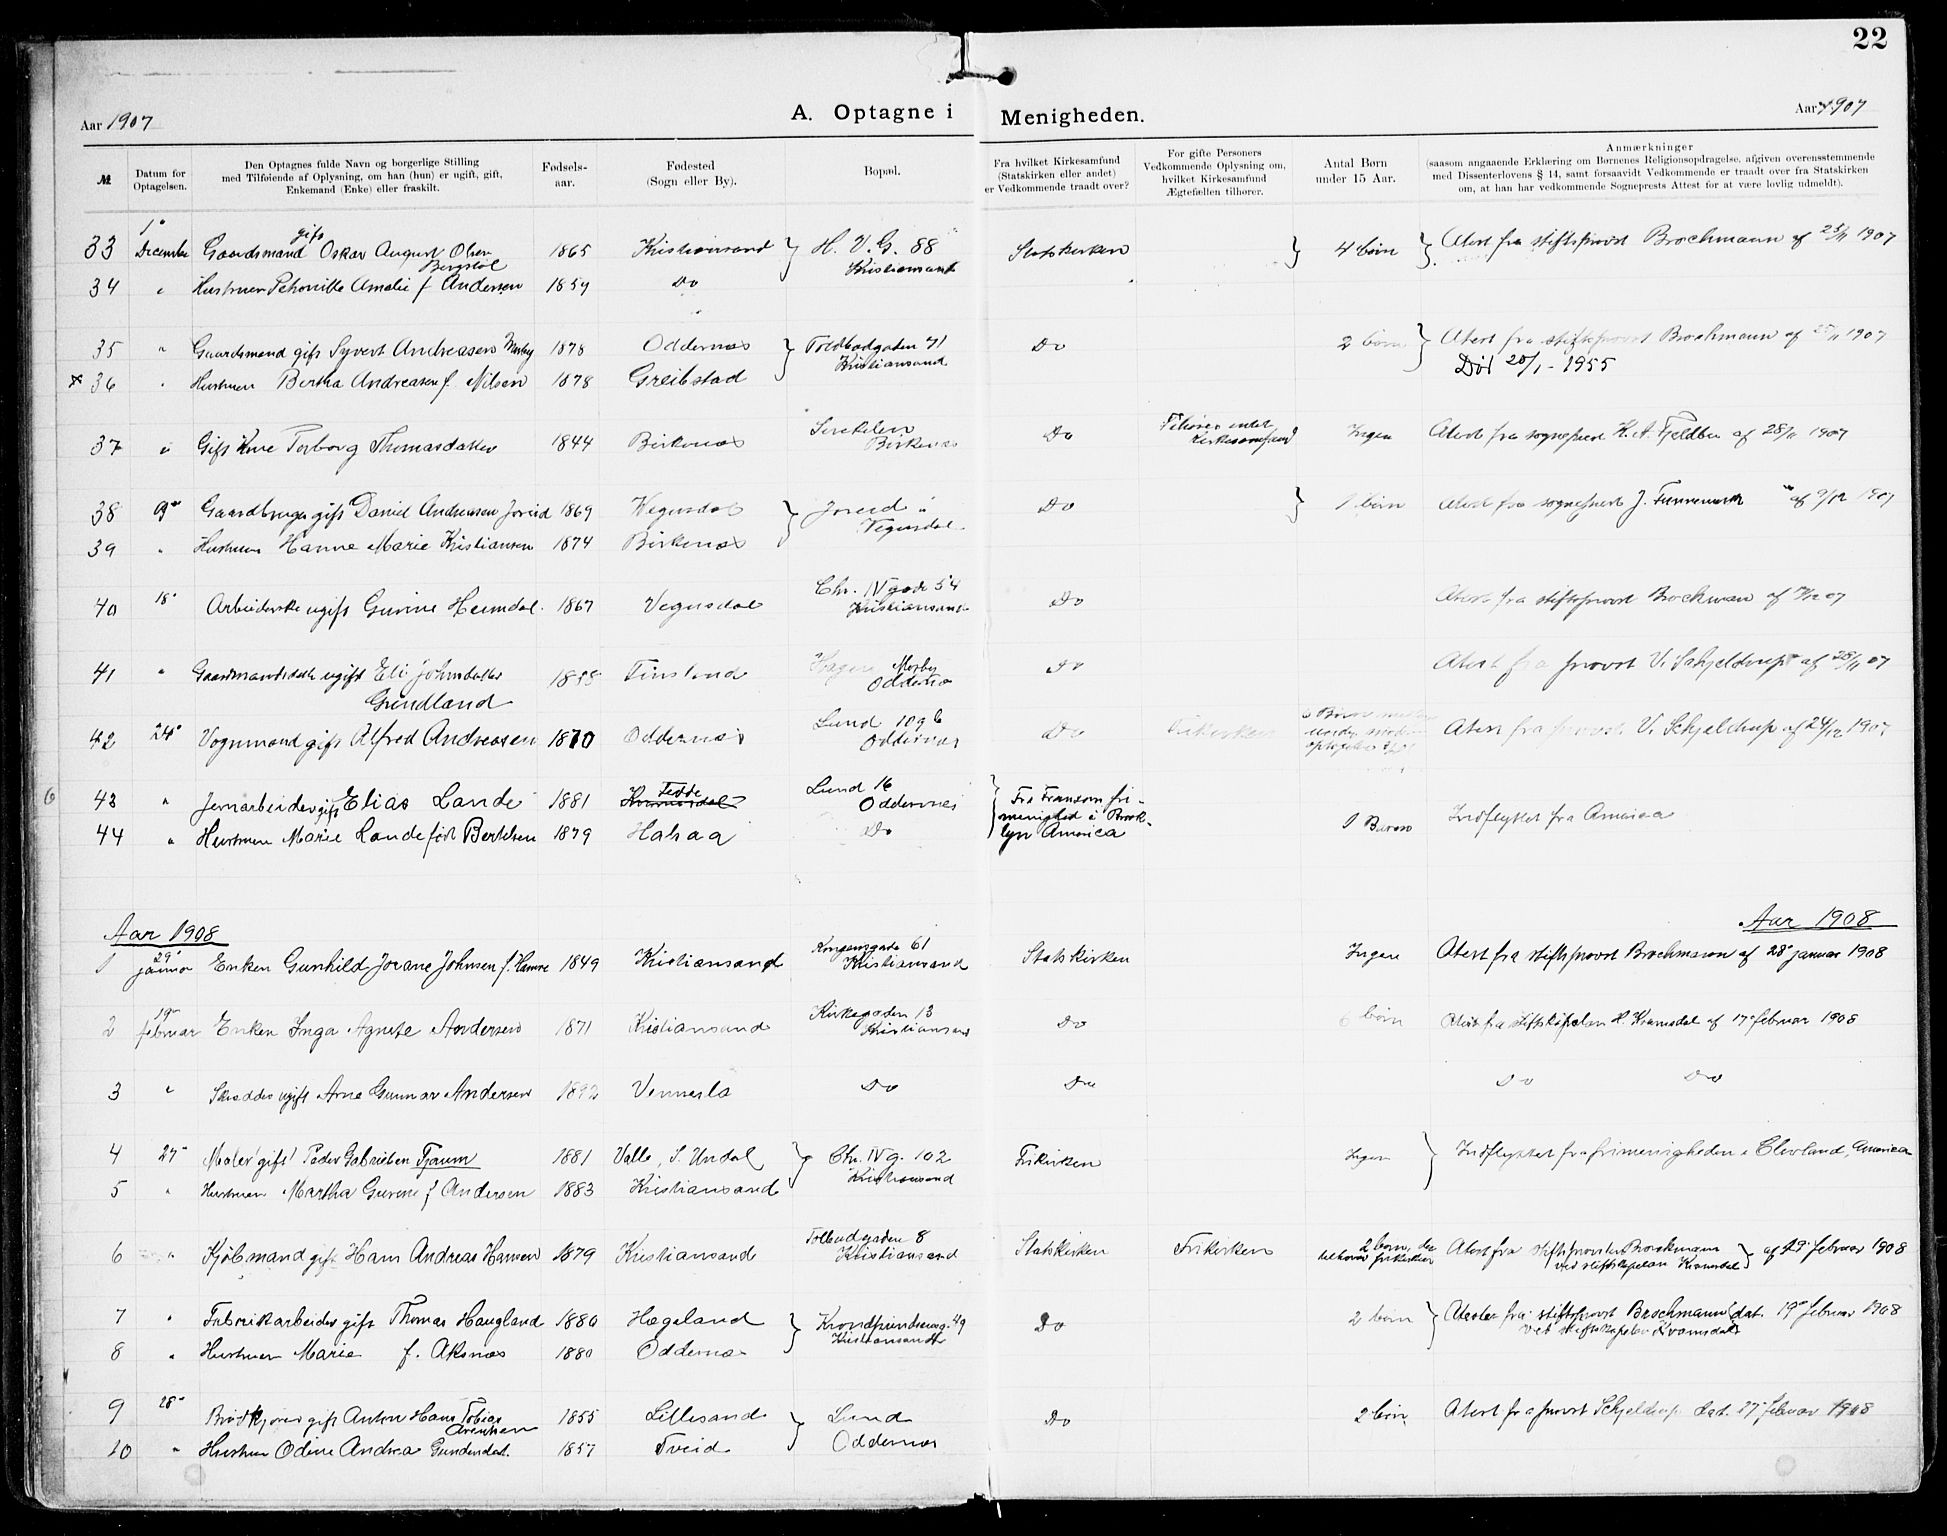 22
Aar 1907 A. Optagne i Menigheden. Aar 1907
№ Datum for Optagelsen. Den Optagnes fulde Navn og borgerlige Stilling med Tilføiende af Oplysning, om han (hun) er ugift, gift, Enkemand (Enke) eller fraskilt. Fødsels-aar. Fødested (Sogn eller By). Bopæl. Fra hvilket Kirkesamfund (Statskirken eller andet) er Vedkommende traadt over? For gifte Personers Vedkommende Oplysning om, hvilket Kirkesamfund Ægtefællen tilhører. Antal Børn under 15 Aar. Anmærkninger (saasom angaaende Erklæring om Børnenes Religionsopdragelse, afgiven overensstemmende med Dissenterlovens § 14, samt forsaavidt Vedkommende er traadt over fra Statskirken om, at han har vedkommende Sogneprests Attest for at være lovlig udmeldt).
33 1" December Gaardsmand gift Oskar August Olsen Bergstøl 1865 Kristiansand H. V. G. 88 Kristiansand Statskirken 4 børn Atest fra stiftsprovst Brochmann af 25/11 1907
34 " Hustruen Amalie f Andersen 1859 Do
35 " Gaardsmand gift Syvert Andreasen Mosby 1878 Oddernæs Toldbodgaden 71 Kristiansand Do 2 børn Atest fra stiftsprovst Brochmann af 25/11 1907
x 36 " Hustruen Bertha Andreasen f. Nilsen 1878 Greibstad Død 20/1 - 1955
37 " Gift Kone Torborg Thomasdatter 1844 Birkenæs Birkenæs Do Tilhører intet Kirkesamfund Ingen Atest fra sogneprest K. A. Fjeldbu af 28/11 1907
38 9" Gaardbruger gift Daniel Andreasen Joreid 1869 Vegusdal Joreid i Vegusdal Do 1 børn Atest fra sogneprest J. af 9/12 1907
39 " Hustruen Hanne Marie Kristiansen 1874 Birkenæs
40 18" Arbeiderske ugift Gurine Heimdal 1867 Vegusdal Chr. IV gade 54 Kristiansand Do Atest fra stiftsprovst Brochman af 07
41 " Gaardmandsdatter ugift Eli Johnsdatter Grindland 1858 Finsland Mosby Oddernæs Do Atest fra provst V. Schjeldrup af 28/11 07
42 24" Vognmand gift Alfred Andreasen 1870 Oddernæs Lund 109 b Oddernæs Do Frikirken 6 Børn Atest fra provst V. Schjeldrup af 24/12 1907
6 43 " Jernarbeider gift Elias Lande 1881 Fedde Lund 16 Oddernes Fra Fransom fri-menighed i Brook-lyn America
44 " Hustruen Marie Lande født Bertelsen 1879 Halsaa Do 1 Barn Indflyttet fra America
Aar 1908 Aar 1908
1 29" januar Enken Gunhild Jorane Johnsen f. Hamre 1849 Kristiansand Kongensgade 61 Kristiansand Statskirken Ingen Atest fra stiftsprovst Brochmann af 28" januar 1908
2 19" februar Enken Inga Agnete Andersen 1871 Kristiansand Kirkegaden 13 Kristiansand Do 6 børn Atest fra stiftskapelan H. Kvamsdal af 17" februar 1908
3 " Skrædder ugift Arne Gunnar Andersen 1892 Vennesla Do Do Do Do
4 27" Maler gift Peder Gabrielsen Tjaum 1881 Valle, S. Undal Chr. IV g. 102 Kristiansand Frikirken Ingen Indflyttet fra frimenigheden i Clevland, America
5 " Hustruen Martha Gurine f Andersen 1883 Kristiansand
6 " Kjøbmand gift Hans Andreas Hansen 1879 Kristiansand Tolbodgaden 8 Kristiansand Statskirken Frikirken 2 børn, der tilhører frikirken Atest fra stiftsprovsten Brochmann ved stiftskapelan Kvamsdal af 19" februar 1908
7 " Fabrikarbeider gift Thomas Haugland 1880 Hægeland Krondprindsensg. 49 Kristiansand Do 2 børn Atester fra stiftsprovst Brochmann dat. 19" februar 1908 ved stiftskapelan Kvamsdal
8 " Hustruen Marie f. Aksnæs 1880 Oddernæs
9 28" Brødkjører gift Anton Hans Tobias Arentsen 1855 Lillesand Lund Oddernæs Do 2 børn Atest fra provst Schjeldrup dat. 27" februar 1908
10 " Hustruen Odine Andrea Gundersdat. 1857 Tveid